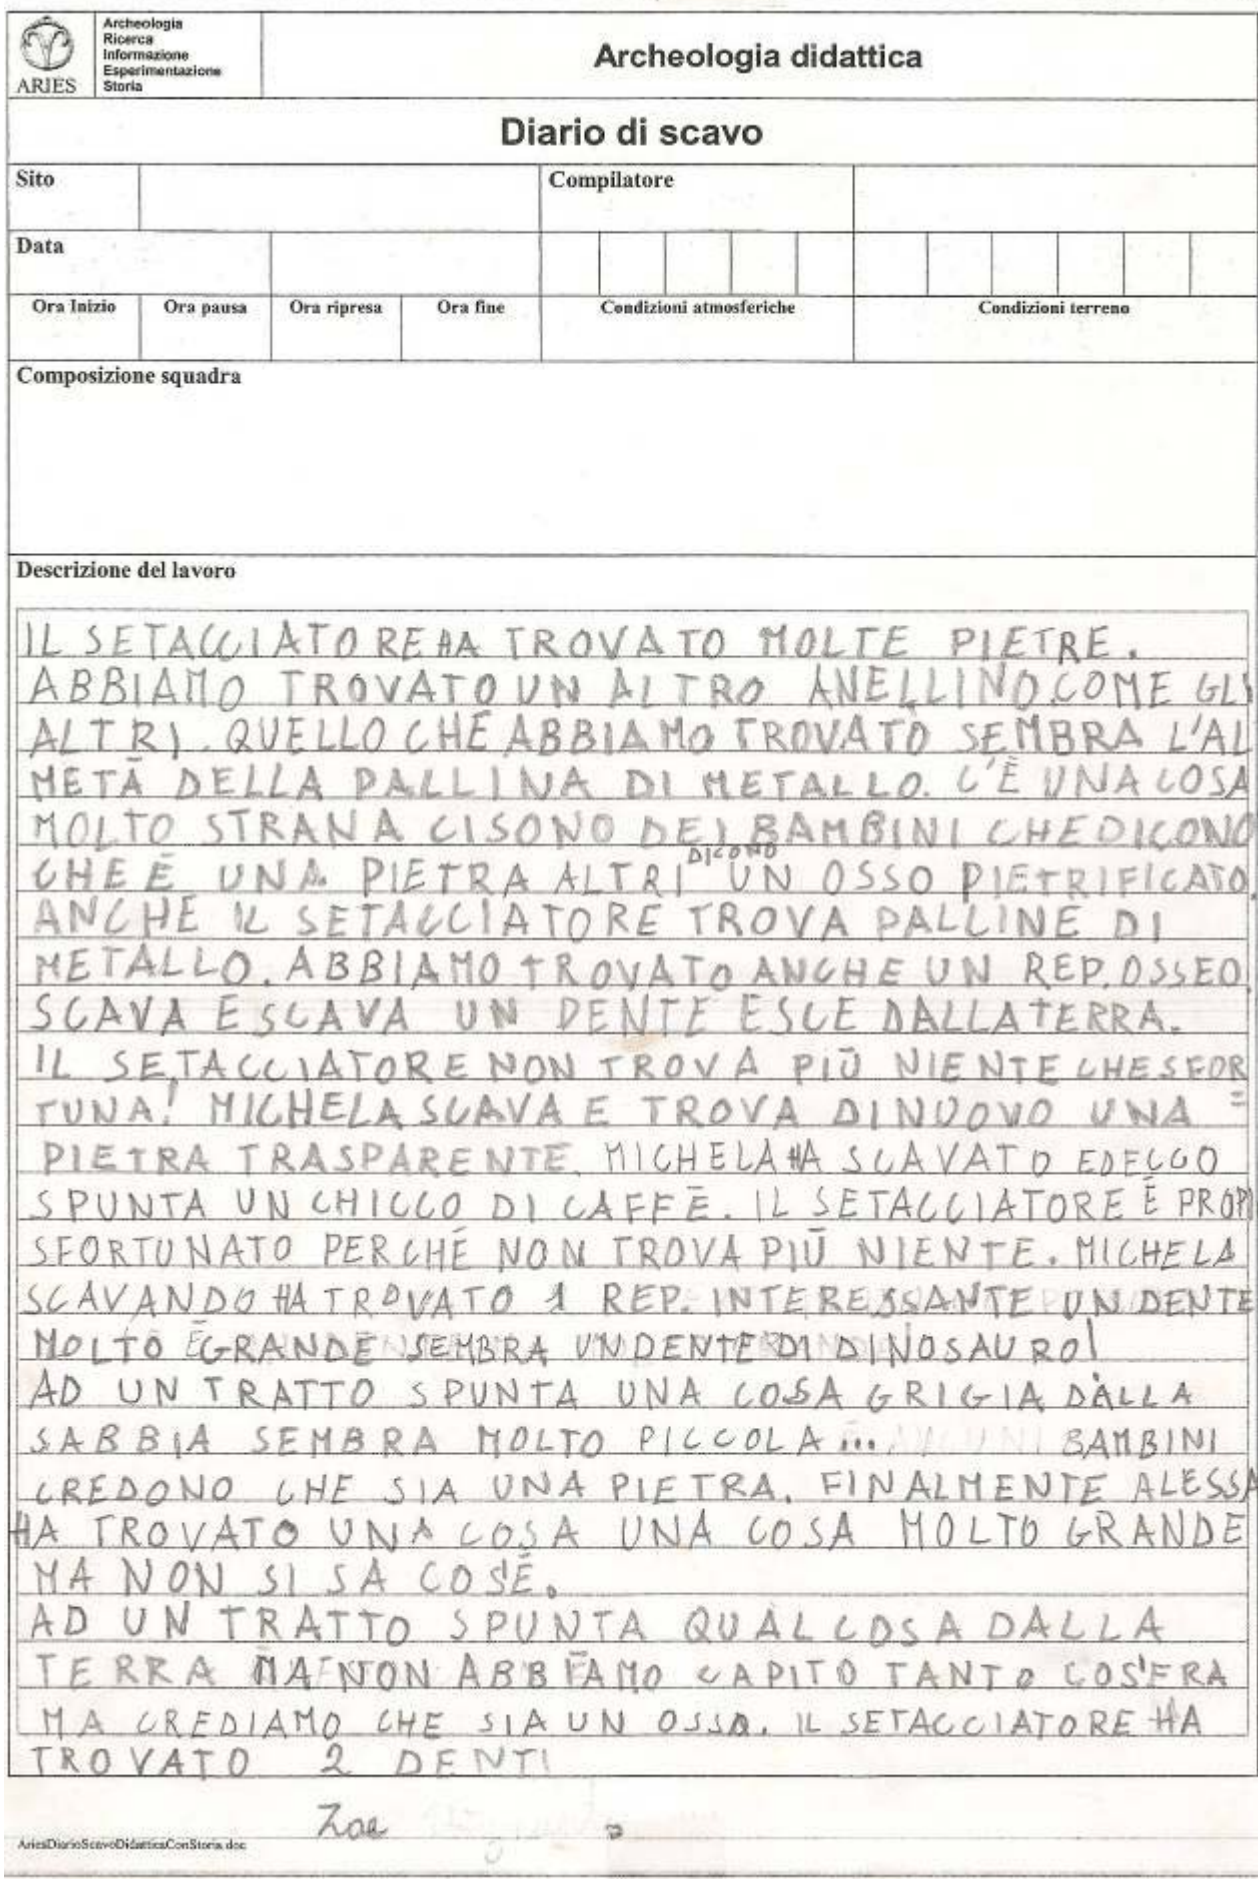 Archeologia
Ricerca
Informazione
Esperimentazione
Storia
ARIES
Archeologia didattica
Diario di scavo
Sito
Compilatore
Data
Ora Inizio
Ora pausa
Ora ripresa
Ora fine
Condizioni atmosferiche
Condizioni terreno
Composizione squadra
Descrizione del lavoro
IL SETACCIATORE HA TROVATO MOLTE PIETRE.
ABBIAMO TROVATO UN ALTRO ANELLINO COME GLI
ALTRI. QUELLO CHE ABBIAMO TROVATO SEMBRA L'AL
METÀ DELLA PALLINA DI METALLO. C'È UNA COSA
MOLTO STRANA CISONO DEI BAMBINI CHE DICONO
CHE È UNA PIETRA ALTRI DICONO UN OSSO PIETRIFICATO
ANCHE IL SETACCIATORE TROVA PALLINE DI
METALLO. ABBIAMO TROVATO ANCHE UN REP. OSSEO.
SCAVA E SCAVA UN DENTE ESCE DALLA TERRA.
IL SETACCIATORE NON TROVA PIÙ NIENTE CHE SFOR
TUNA! MICHELA SCAVA E TROVA DINUOVO UNA =
PIETRA TRASPARENTE. MICHELA HA SCAVATO ED ECCO
SPUNTA UN CHICCO DI CAFFÈ. IL SETACCIATORE È PROPI
SFORTUNATO PERCHÉ NON TROVA PIÙ NIENTE. MICHELA
SCAVANDO HA TROVATO 1 REP. INTERESSANTE UN DENTE
MOLTO È GRANDE SEMBRA UN DENTE DI DINOSAURO!
AD UN TRATTO SPUNTA UNA COSA GRIGIA DALLA
SABBIA SEMBRA MOLTO PICCOLA... BAMBINI
CREDONO CHE SIA UNA PIETRA. FINALMENTE ALESSA
HA TROVATO UNA COSA UNA COSA MOLTO GRANDE
MA NON SI SA COSÈ.
AD UN TRATTO SPUNTA QUALCOSA DALLA
TERRA MA NON ABBIAMO CAPITO TANTO COS'ERA
MA CREDIAMO CHE SIA UN OSSO. IL SETACCIATORE HA
TROVATO 2 DENTI
Zoe
AriesDiarioScavoDidatticaConStoria.doc